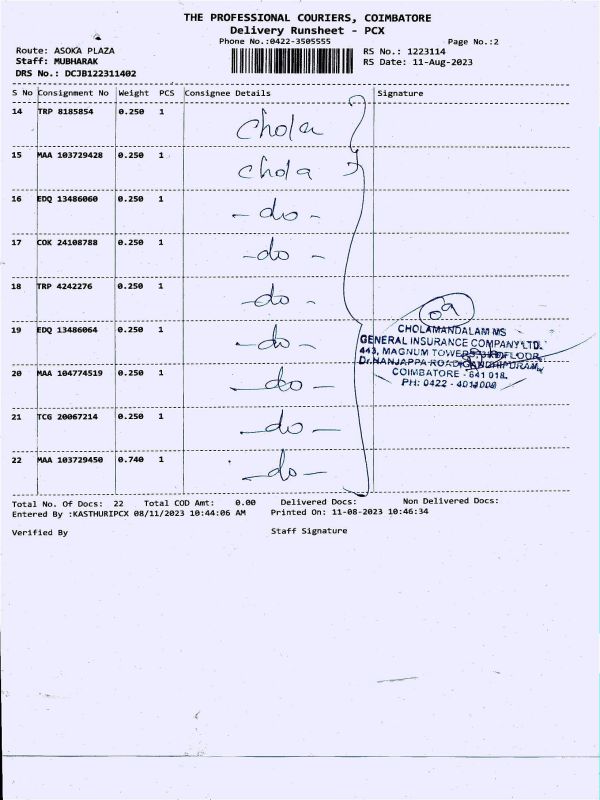 THE PROFESSIONAL COURIERS, COIMBATORE
Delivery Runsheet - PCX
Phone No.:0422-3505555 Page No.:2
Route: ASOKA PLAZA RS No.: 1223114
Staff: MUBHARAK RS Date: 11-Aug-2023
DRS No.: DCJB122311402
S No Consignment No Weight PCS Consignee Details Signature
14 TRP 8185854 0.250 1 Chola
15 MAA 103729428 0.250 1 chola
16 EDQ 13486060 0.250 1 - do -
17 COK 24108788 0.250 1 - do -
18 TRP 4242276 0.250 1 - do -
19 EDQ 13486064 0.250 1 - do -
20 MAA 104774519 0.250 1 - do -
21 TCG 20067214 0.250 1 - do -
22 MAA 103729450 0.740 1 - do -
09
CHOLAMANDALAM MS
GENERAL INSURANCE COMPANY LTD.
443, MAGNUM TOWERS, FLOOR,
Dr.NANJAPPA ROAD, GANDHIPURAM,
COIMBATORE - 641 018.
PH: 0422 -
Total No. Of Docs: 22 Total COD Amt: 0.00 Delivered Docs: Non Delivered Docs:
Entered By :KASTHURIPCX 08/11/2023 10:44:06 AM Printed On: 11-08-2023 10:46:34
Verified By Staff Signature